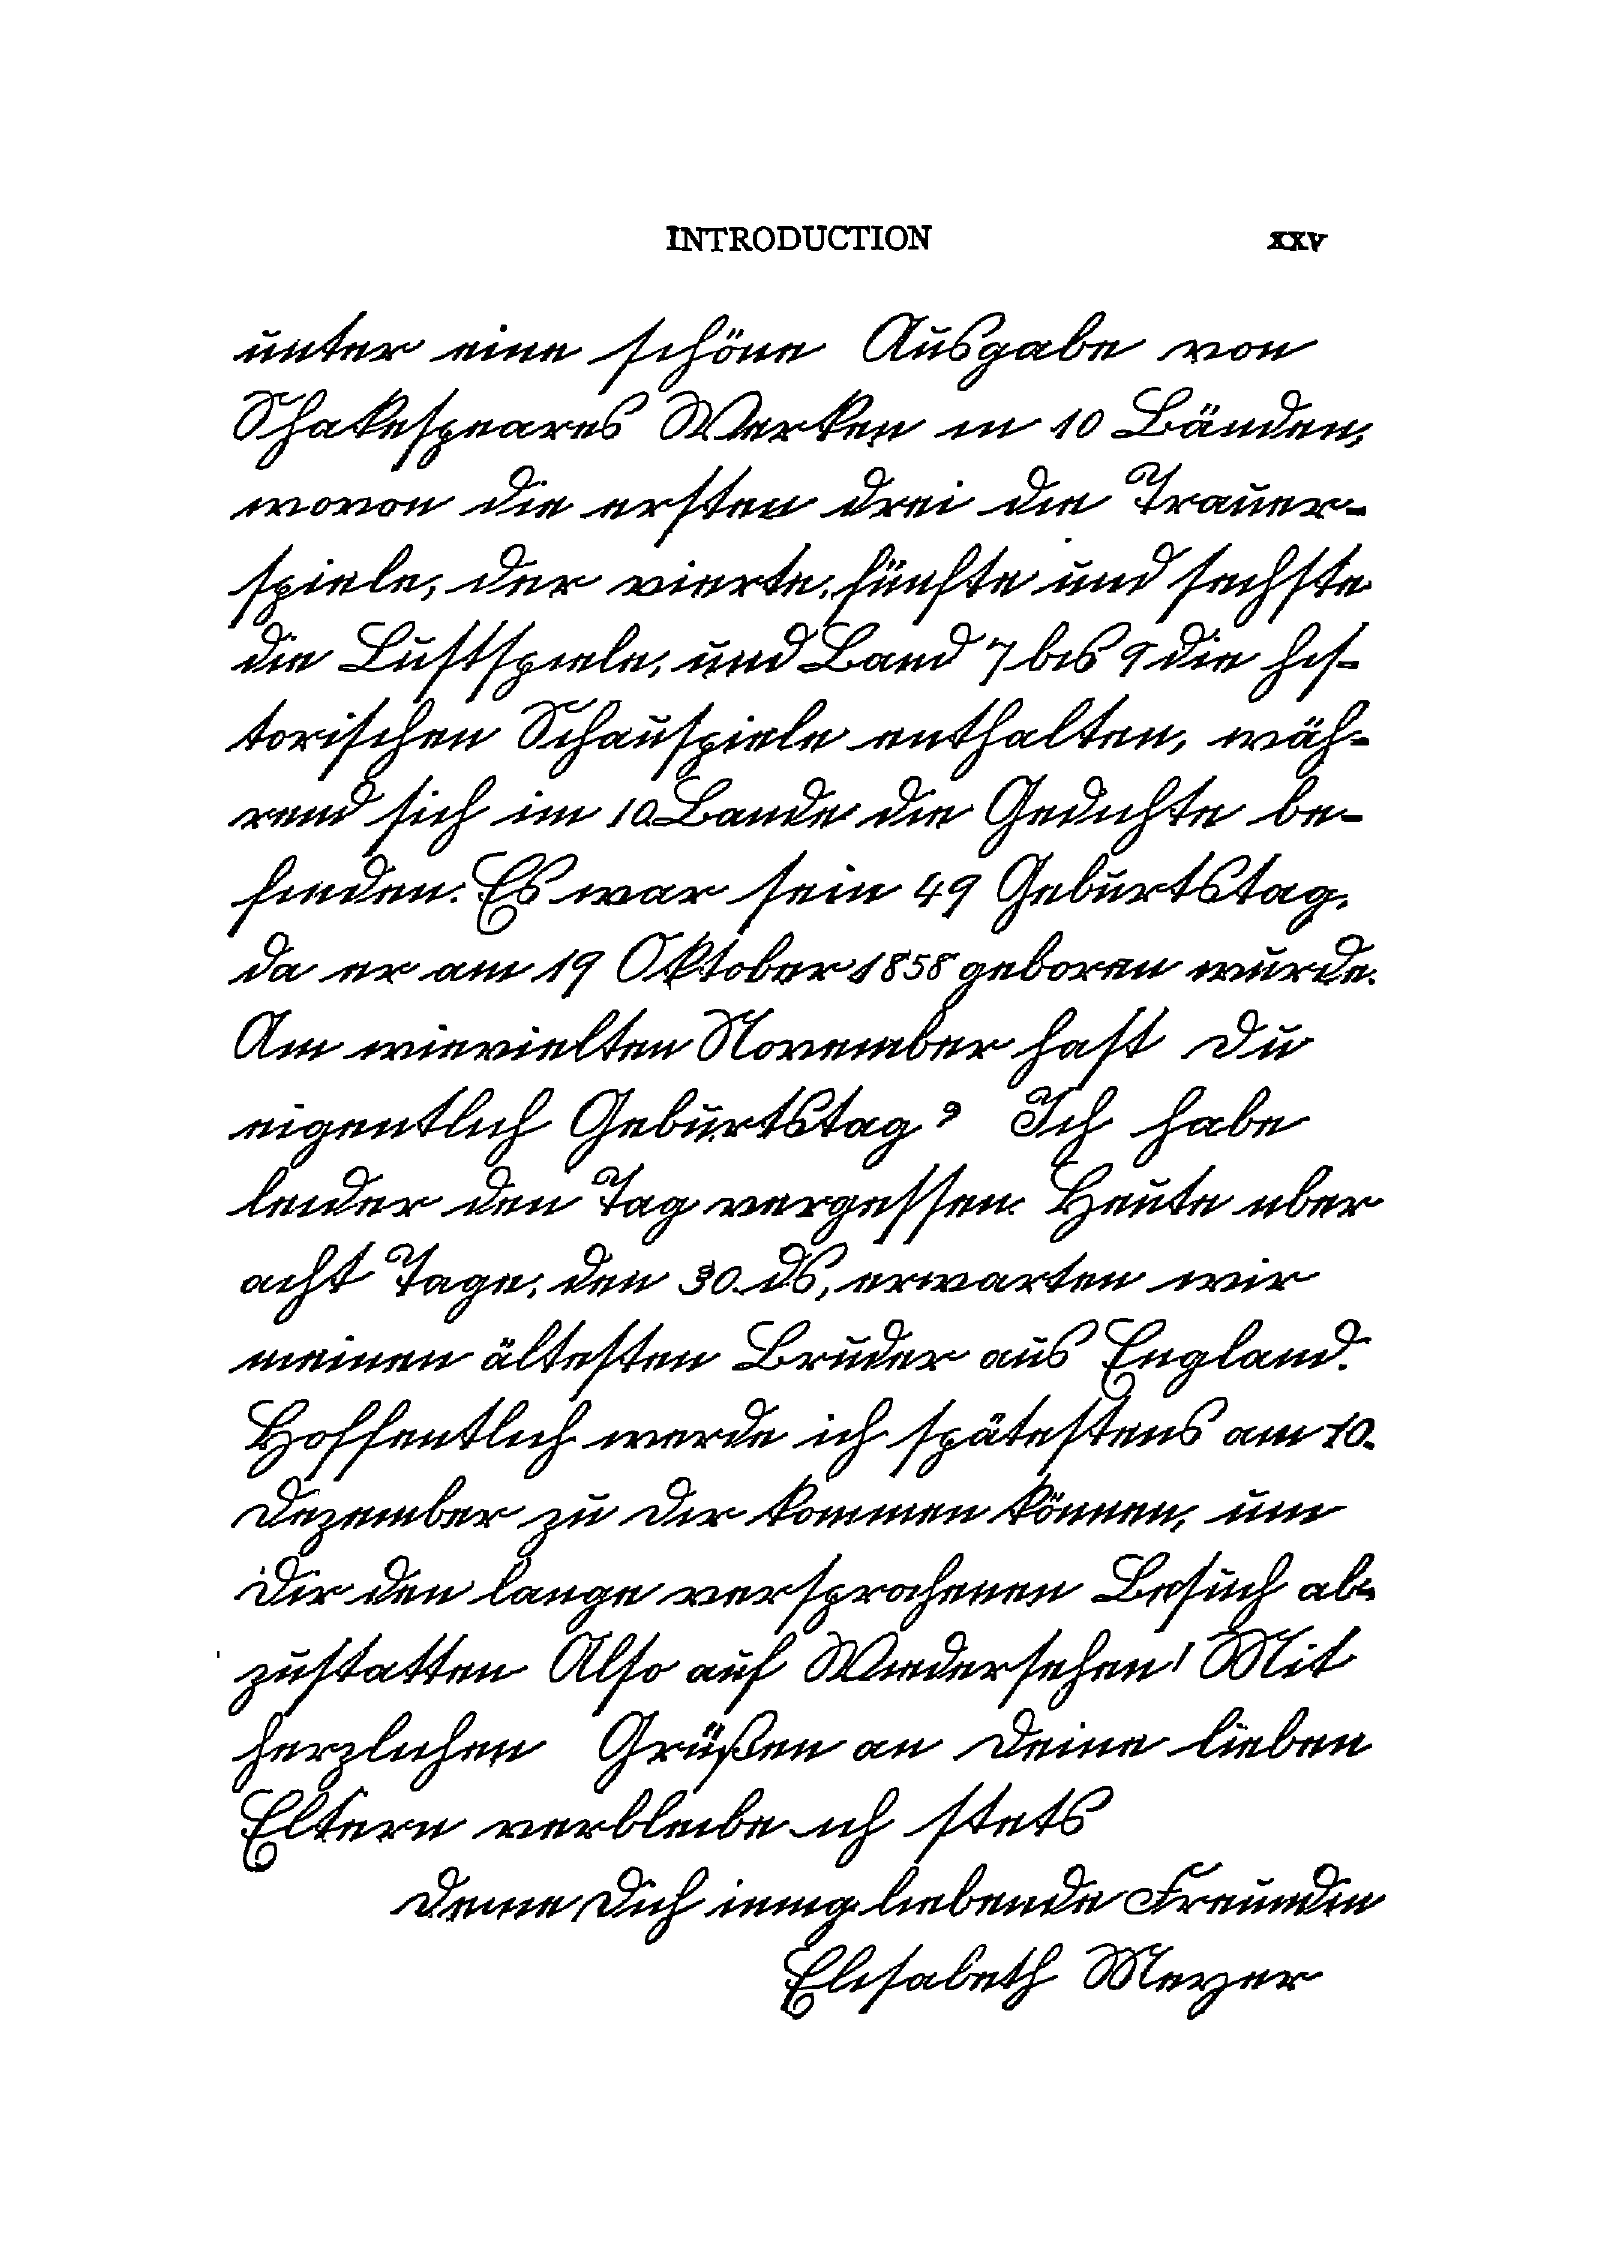 INTRODUCTION xxv
unter eine schöne Ausgabe von
Shakespeares Werken in 10 Bänden,
wovon die ersten drei die Trauer-
spiele, der vierte, fünfte und sechste
die Lustspiele, und Band 7 bis 9 die his-
torischen Schauspiele enthalten, wäh-
rend sich im 10. Bande die Gedichte be-
finden. Es war sein 49 Geburtstag,
da er am 19 Oktober 1858 geboren wurde.
Am wievielten November hast Du
eigentlich Geburtstag? Ich habe
leider den Tag vergessen. Heute uber
acht Tage, den 30. ds, erwarten wir
meinen ältesten Bruder aus England.
Hoffentlich werde ich spätestens am 10.
Dezember zu Dir kommen können, um
Dir den lange versprochenen Besuch ab-
zustatten Also auf Wiedersehen! Mit
herzlichen Grüßen an Deine lieben
Eltern verbleibe ich stets
Deine Dich innig liebende Freundin
Elisabeth Meyer